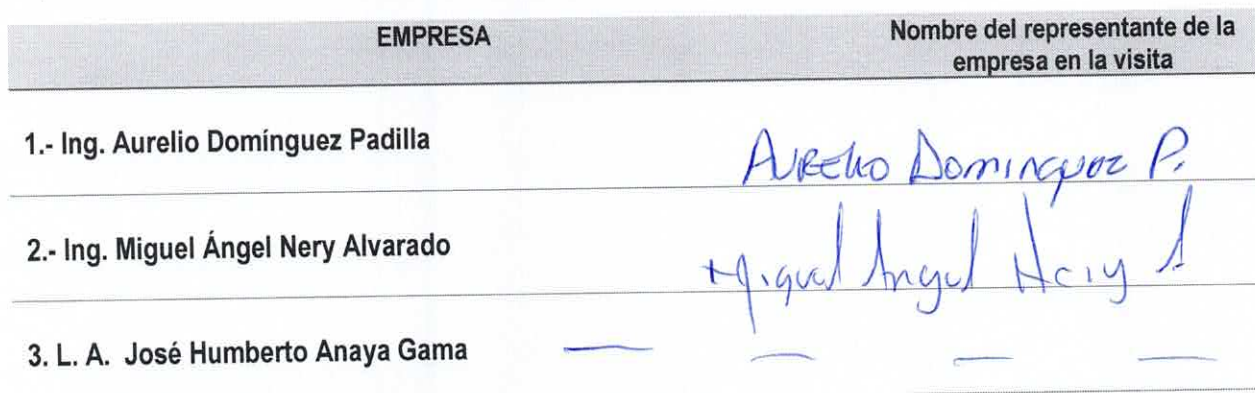 EMPRESA Nombre del representante de la
empresa en la visita
1.- Ing. Aurelio Domínguez Padilla
AURELIO DOMINGUEZ P.
2.- Ing. Miguel Ángel Nery Alvarado
Miguel Angel Nery A
3. L. A. José Humberto Anaya Gama — — — —